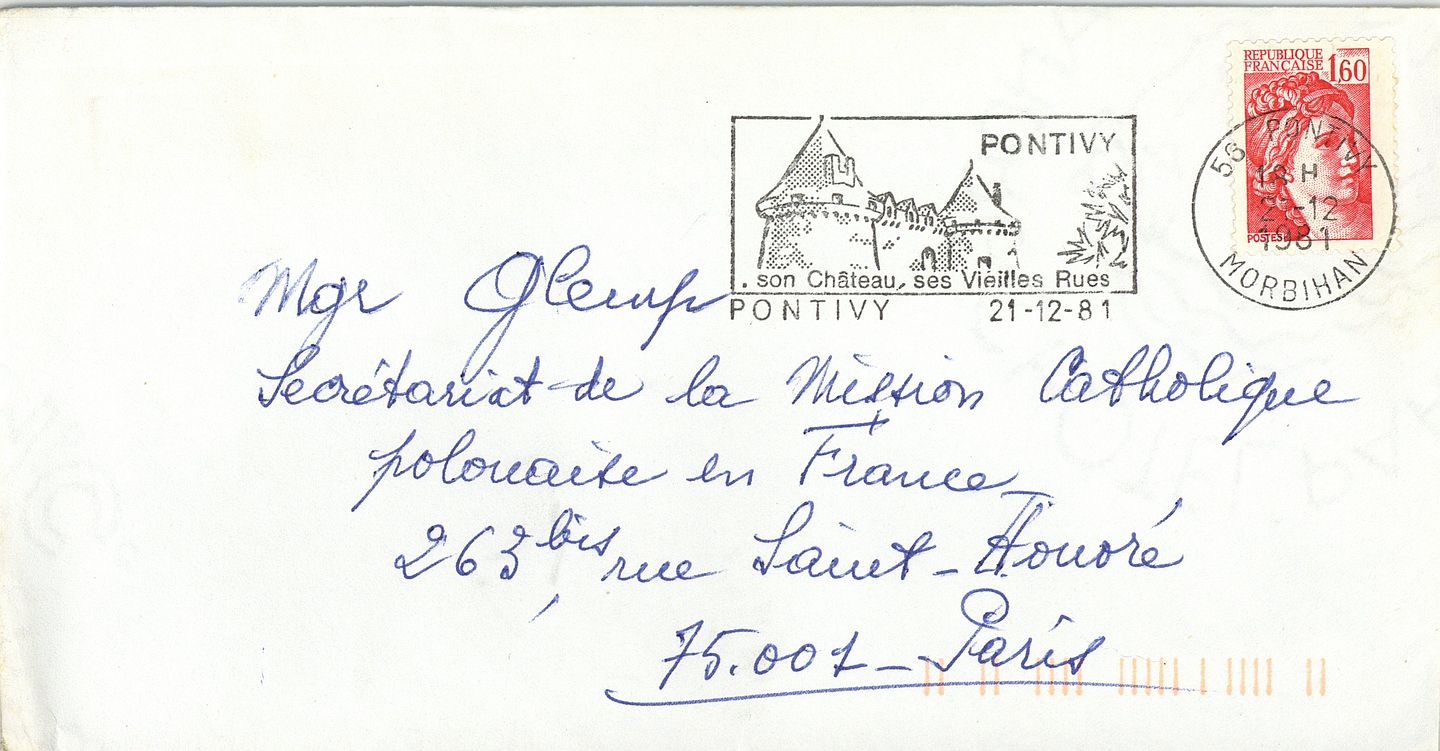 REPUBLIQUE
FRANÇAISE 1,60
POSTES
56 PONTIVY
18 H
21-12
1981
MORBIHAN
PONTIVY
. son Château, ses Vieilles Rues
PONTIVY 21-12-81
Mgr Glemp
Secrétariat de la Mission Catholique
polonaise en France
263 bis, rue Saint-Honoré
75.001 - Paris